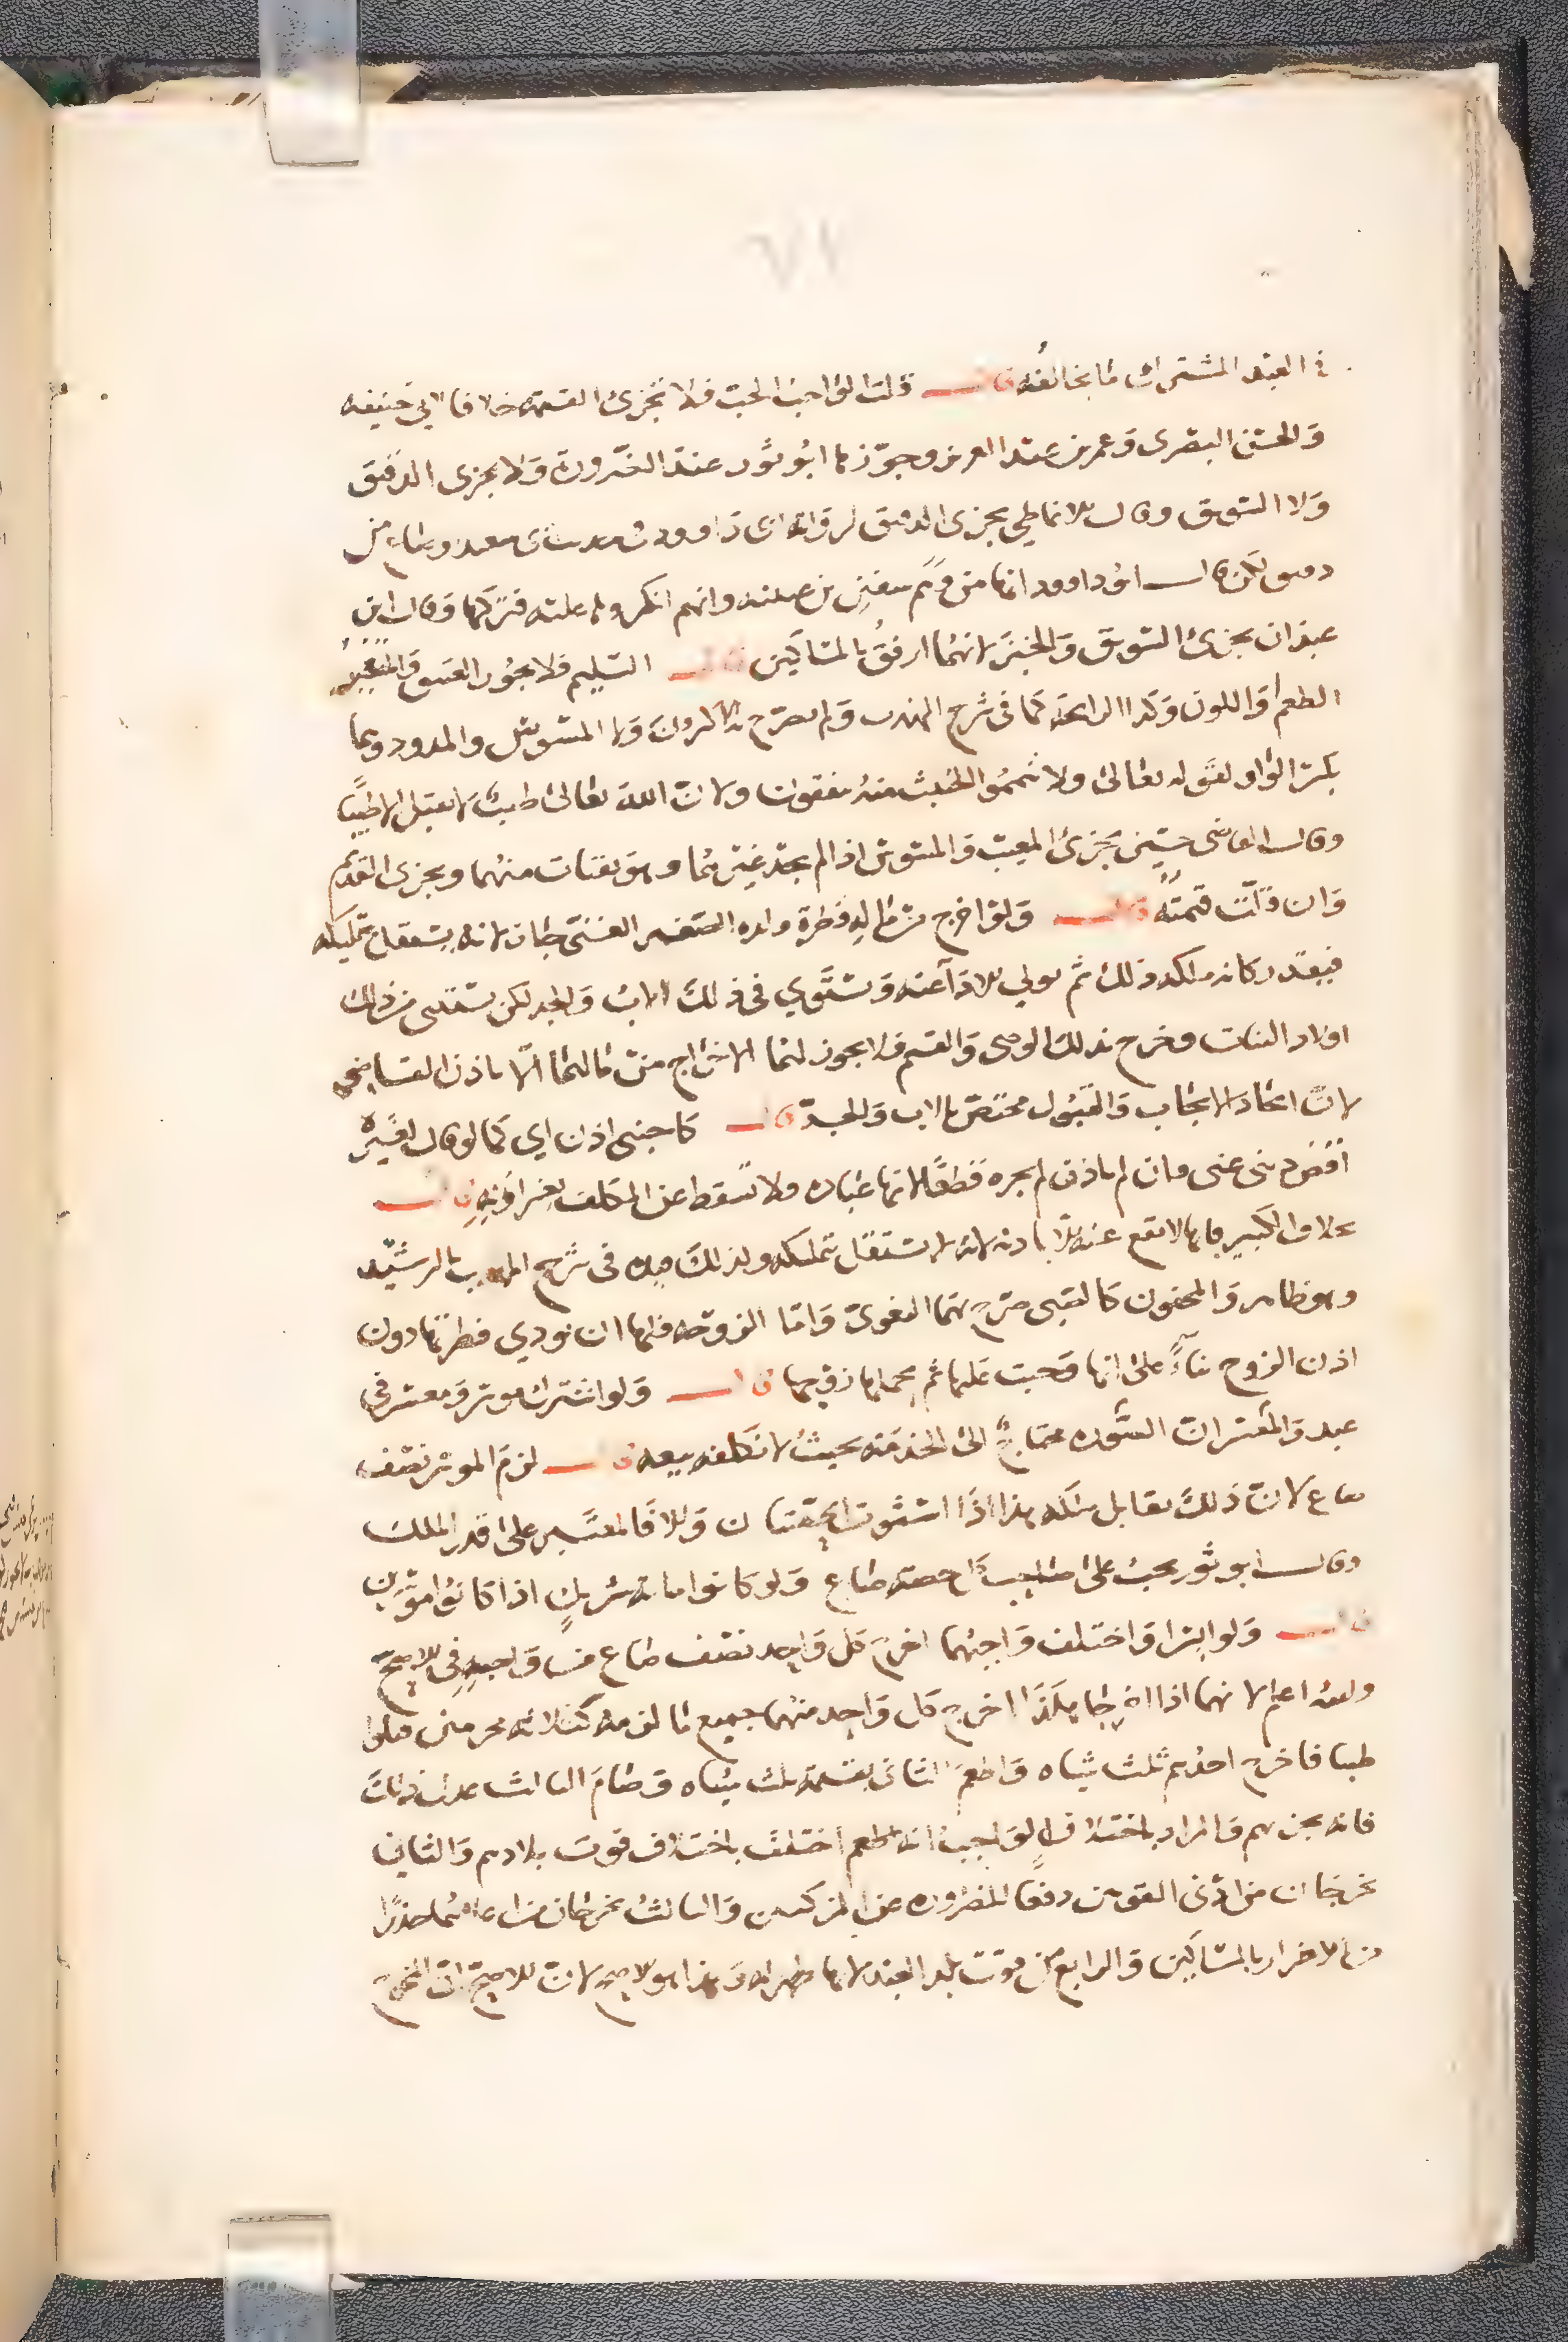 ٦٧
في العبد المشترك ما يخالفه قال قلت الواجب الحب فلا تجزئ القيمة خلافا لابي حنيفه
والحسن البصرى وعمر بن عبد العزيز وجوزها ابو ثور عند الضرورة ولا يجزى الدقيق
ولا السويق وقال الانماطي يجزى الدقيق لرواية ابى داوود في حديث ابى سعيد وصاع من
دقيق لكن قال ابو داوود انها من وهم سفين بن عيينه وانهم انكروها عليه فتركها وقال ابن
عبدان يجزئ السويق والخبز لانهما ارفق بالمساكين قال السليم فلا يجوز المسوس والمتغير
الطعم او اللون وكذا الرايحه كما فى شرح المهذب ولم يصرح به الاكثرون ولا المسوس والمدود وهما
بكسر الواو لقوله تعالى ولا تيمموا الخبيث منه تنفقون ولان الله تعالى طيب لا يقبل الا طيبا
وقال القاضى حسين يجزئ المعيب والمسوس اذا لم يجد غيرهما وهو يقتات منهما ويجزى القديم
وان قلت قيمته قال ولو اخرج من ماله فطرة ولده الصغير الغنى جاز لانه يستقل بتمليكه
فيقدر كانه ملكه ذلك ثم تولي الاداء عنه ويستوي في ذلك الاب والجد لكن يستثنى من ذلك
اولاد البنات وخرج بذلك الوصى والقيم فلا يجوز لهما الاخراج من مالهما الا باذن القاضي
لان اتحاد الايجاب والقبول مختص بالاب والجد قال كاجنبى اذن اي كما لو قال لغيره
اقض دينى عنى فان لم ياذن لم يجزه قطعا لانها عباده فلا تسقط عن المكلف بغير اذنه قال
بخلاف الكبير فانها لا تقع عنه الا باذنه لانه لا يستقل بتمليكه ولذلك قيده في شرح المهذب بالرشيد
وهو ظاهر والمجنون كالصبى صرح بهما البغوى واما الزوجه فلها ان تودي فطرتها دون
اذن الزوج بناء على انها وجبت عليها ثم تحملها زوجها قال ولو اشترك موسر ومعسر في
عبد والمعسر ان العبده محتاج الى الخدمه بحيث لا نكلفه بيعه قال لزم الموسر نصف
صاع لان ذلك يقابل ملكه هذا اذا استوت الحصتان والا فالمعتبر على قدر الملك
وقال ابو ثور يجب على صاحب حصته صاع ولو كانوا مائة شريك اذا كانوا موسرين
قال ولو ايسرا واختلف واجبهما اخرج كل واحد نصف صاع من واجبه في الاصح
والله اعلم لانهما اذا اخرجا هكذا اخرج كل واحد منهما جميع ما لزمه كثلاثة محرمين قتلوا
ظبيا فاخرج احدهم ثلث شاه واطعم الثانى بقيمة ثلث شاه وصام الثالث عدل ذلك
فانه يجزيهم والمراد باختلاف الواجب انه لهم اختلف باختلاف قوت بلادهم والثاني
يخرجان من ادنى القوتين دفعا للضرورة عن المزكيين والثالث يخرجان من اعلاهما حذرا
من الاضرار بالمساكين والرابع من قوت بلد العبد لانها طهرة له وهذا هو الاصح لان الاصح ان المخرج